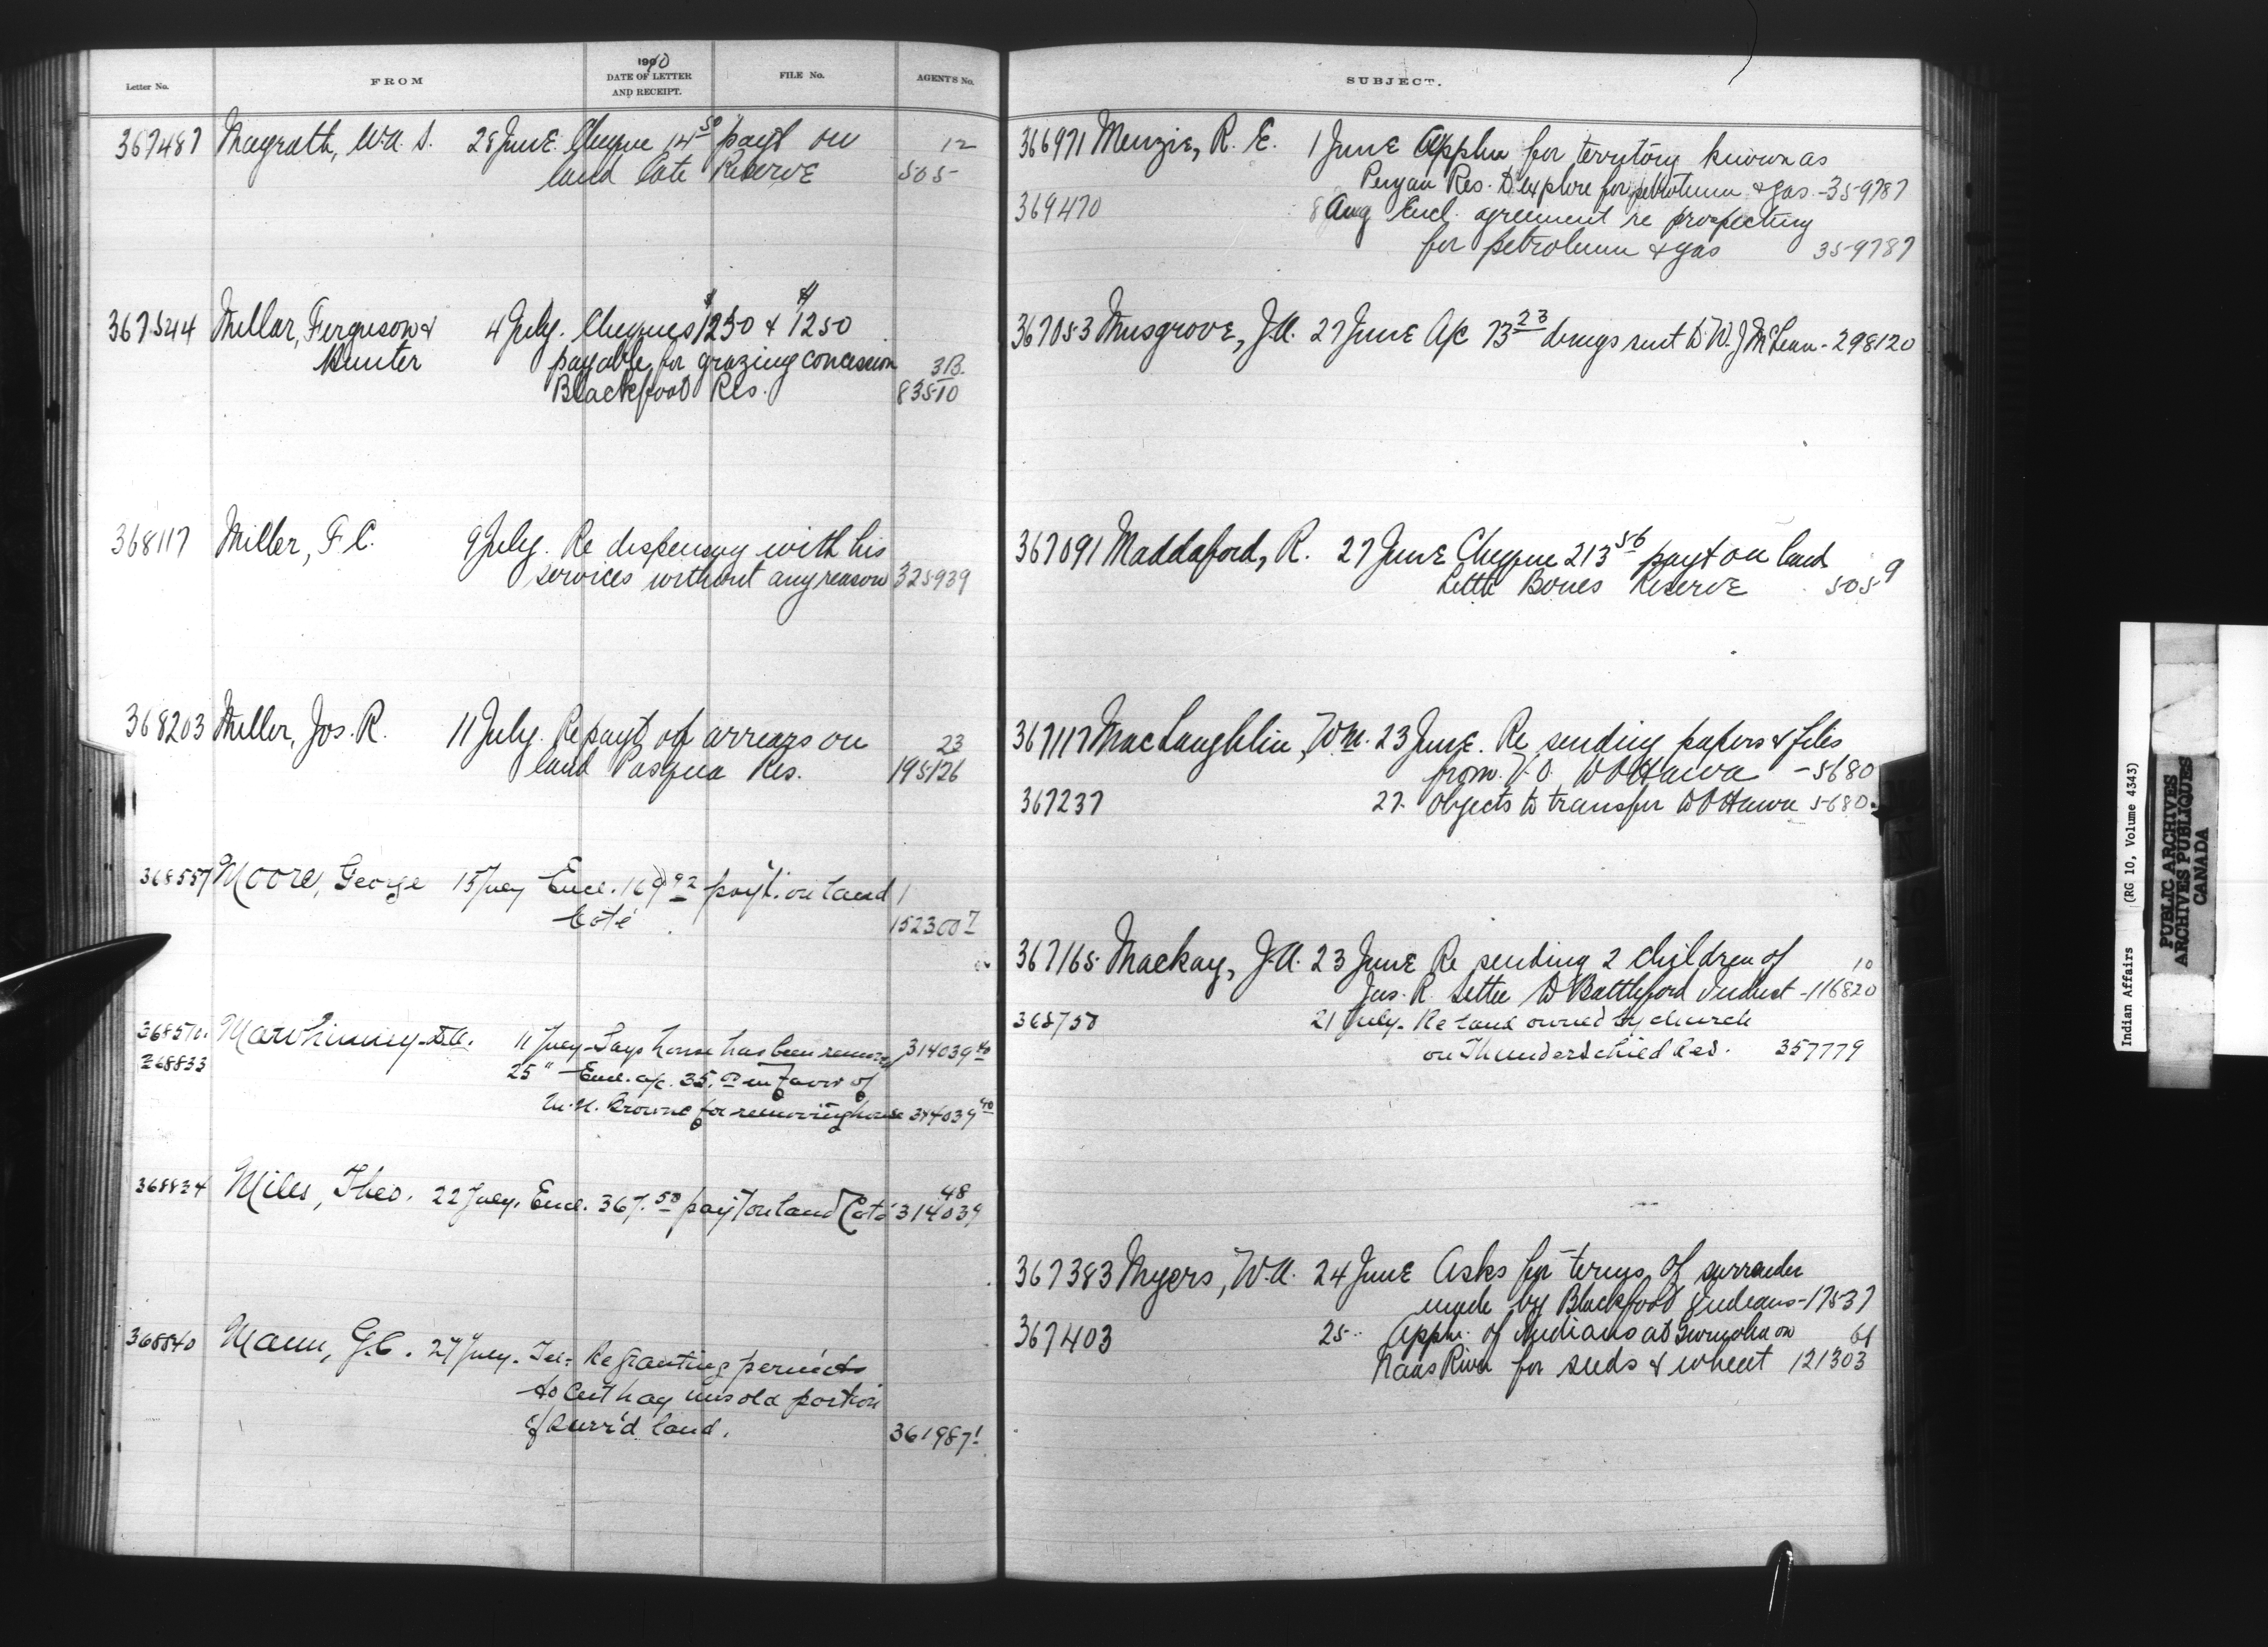 1910
Letter No. FROM DATE OF LETTER AND RECEIPT. FILE No. AGENTS No.
367487 Magrath, W.A. S. 28 June. Cheque 14 50 payt on 12
land Cote Reserve 505
367544 Millar, Ferguson & 4 July. Cheques $1250 & $1250
Hunter payable for grazing concession 3B.
Blackfoot Res. 83510
368117 Miller, F. C. 9 July. Re dispensing with his
services without any reason 325939
368203 Miller, Jos. R. 11 July. Re payt of arrears on 23
land Pasqua Res. 195126
368557 Moore, George 15 July Encl. 169 92 pay't. on land 1
Coté 152300 7
368570. Mawhinney 11 July - Says house has been remov 314039 40
368833 25 " - Encl. a/c. 35. 00 in favor of
M.H. Browne for removing house 314039 40
368834 Miles, Theo. 22 July. Encl. 367. 50 pay't on land Coté 48
314039
368840 Mann, G.C. 27 July. Tel: Re granting permits
to cut hay unsold portion
of surr'd land. 361987 1
SUBJECT.
366971 Menzie, R. E. 1 June Appln for territory known as
Res. to explore for petroleum & gas - 359787
369470 8 Aug Encl. agreement re prospecting
for petroleum & gas 359787
367053 Musgrove, J.A. 27 June A/c 73 23 drugs sent to W. J McLean - 298120
367091 Maddaford, R. 27 June Cheque 213 56 payt on land
Little Bones Reserve 505 9
367117 MacLaughlin, Wm. 23 June. Re sending papers & files
from V.O. to Ottawa - 5680
367237 27. Objects to transfer to Ottawa 5680.
367165. Mackay, J.A. 23 June Re sending 2 children of 10
Jas. R. Settee to Battleford Indust - 116820
368750 21 July. Re land owned by church
on Thunderchild Res. 357779
367383 Myers, W.A. 24 June Asks for terms of surrender
made by Blackfoot Indians - 17537
367403 25 " Appln. of Indians at on 61
Naas River for seeds & wheat 121303
Indian Affairs (RG 10, Volume 4343)
PUBLIC ARCHIVES
ARCHIVES PUBLIQUES
CANADA